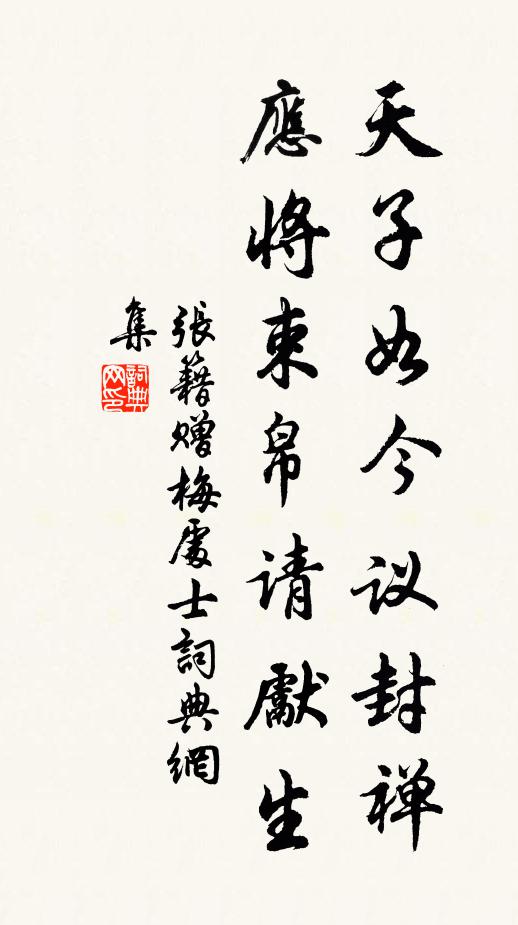 天子如今议封禅
應將束帛请獻生
張籍赠梅處士詞典網
集
詞典
网印